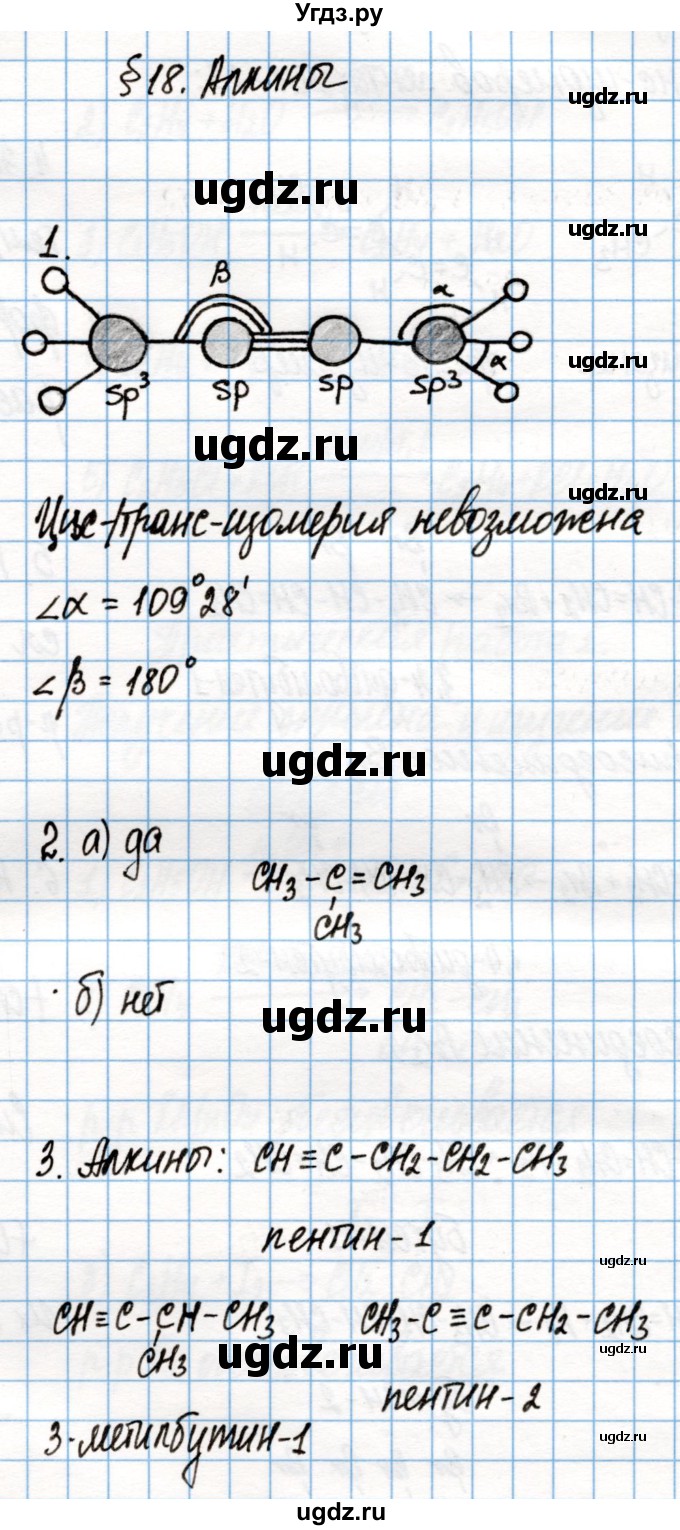 Угдз.ру
§18. Алкины
ugdz.ru
ugdz.ru
1.
ugdz.ru
β α
α
ugdz.ru
sp³ sp sp sp³
ugdz.ru
ugdz.ru
Цис-/транс-изомерия невозможна
∠α = 109°28'
ugdz.ru
∠β = 180°
ugdz.ru
ugdz.ru
2. а) да
CH₃-C=CH₃
CH₃
ugdz.ru
б) нет
ugdz.ru
ugdz.ru
3. Алкины: CH≡C-CH₂-CH₂-CH₃
пентин-1
ugdz.ru
CH≡C-CH-CH₃ CH₃-C≡C-CH₂-CH₃
CH₃
ugdz.ru
ugdz.ru
пентин-2
3-метилбутин-1
ugdz.ru
ugdz.ru